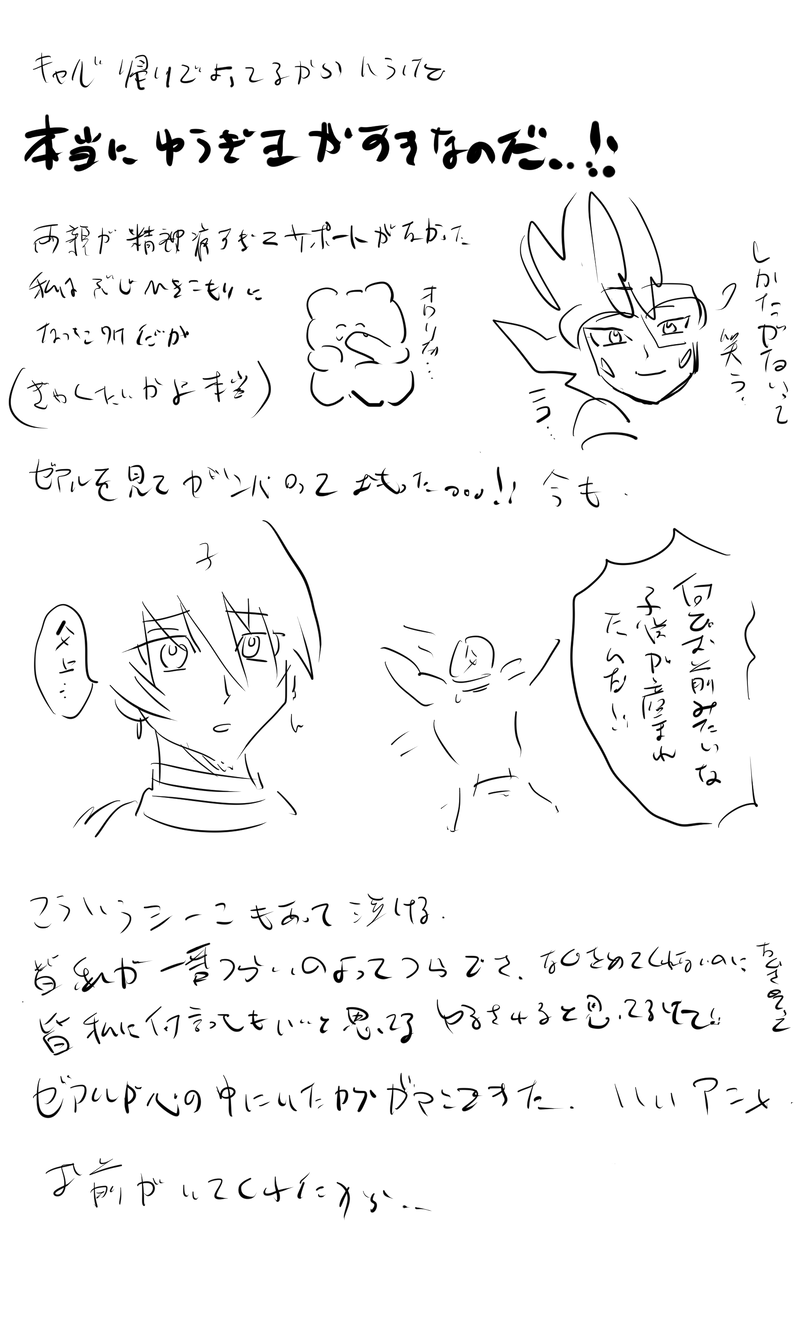 キャバ帰りでよってるから
本当にゆうぎ王がすきなのだ..!!
両親が精神病すぎてサポートがなかった
私は
なっ だが
(ぎゃくたいかよ本当)
オワリだ…
しかたがないって
笑う。
ゼアルを見てガンバってまもった...!! 今も.
子
父上…
父
何でお前みたいな
子供が産まれ
たんだ!!
こういうシーンもあって泣ける.
皆私が一番つらいのよってつらでさ.
皆私に何言ってもいいと思ってる ゆるされると思ってるけど!!
ゼアルが心の中にいたからガマンできた. いいアニメ.
お前がいてくれたから...